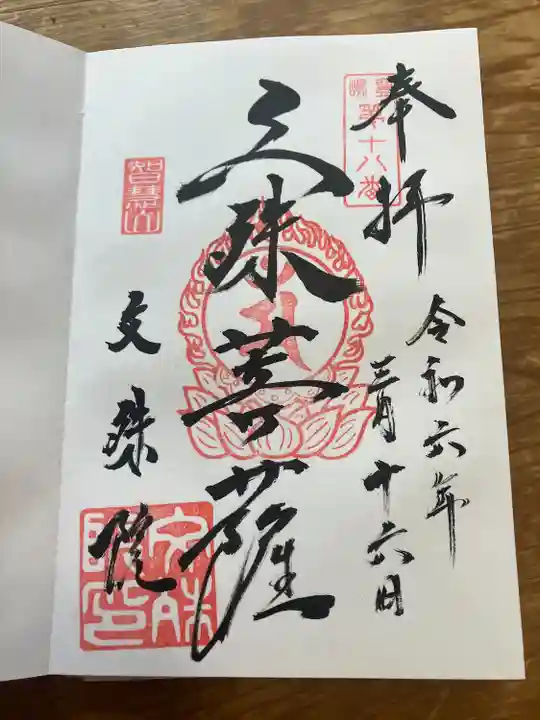 奉拝
第十八番
令和六年
三月十六日
文殊菩薩
智慧山
文殊院
文殊院印